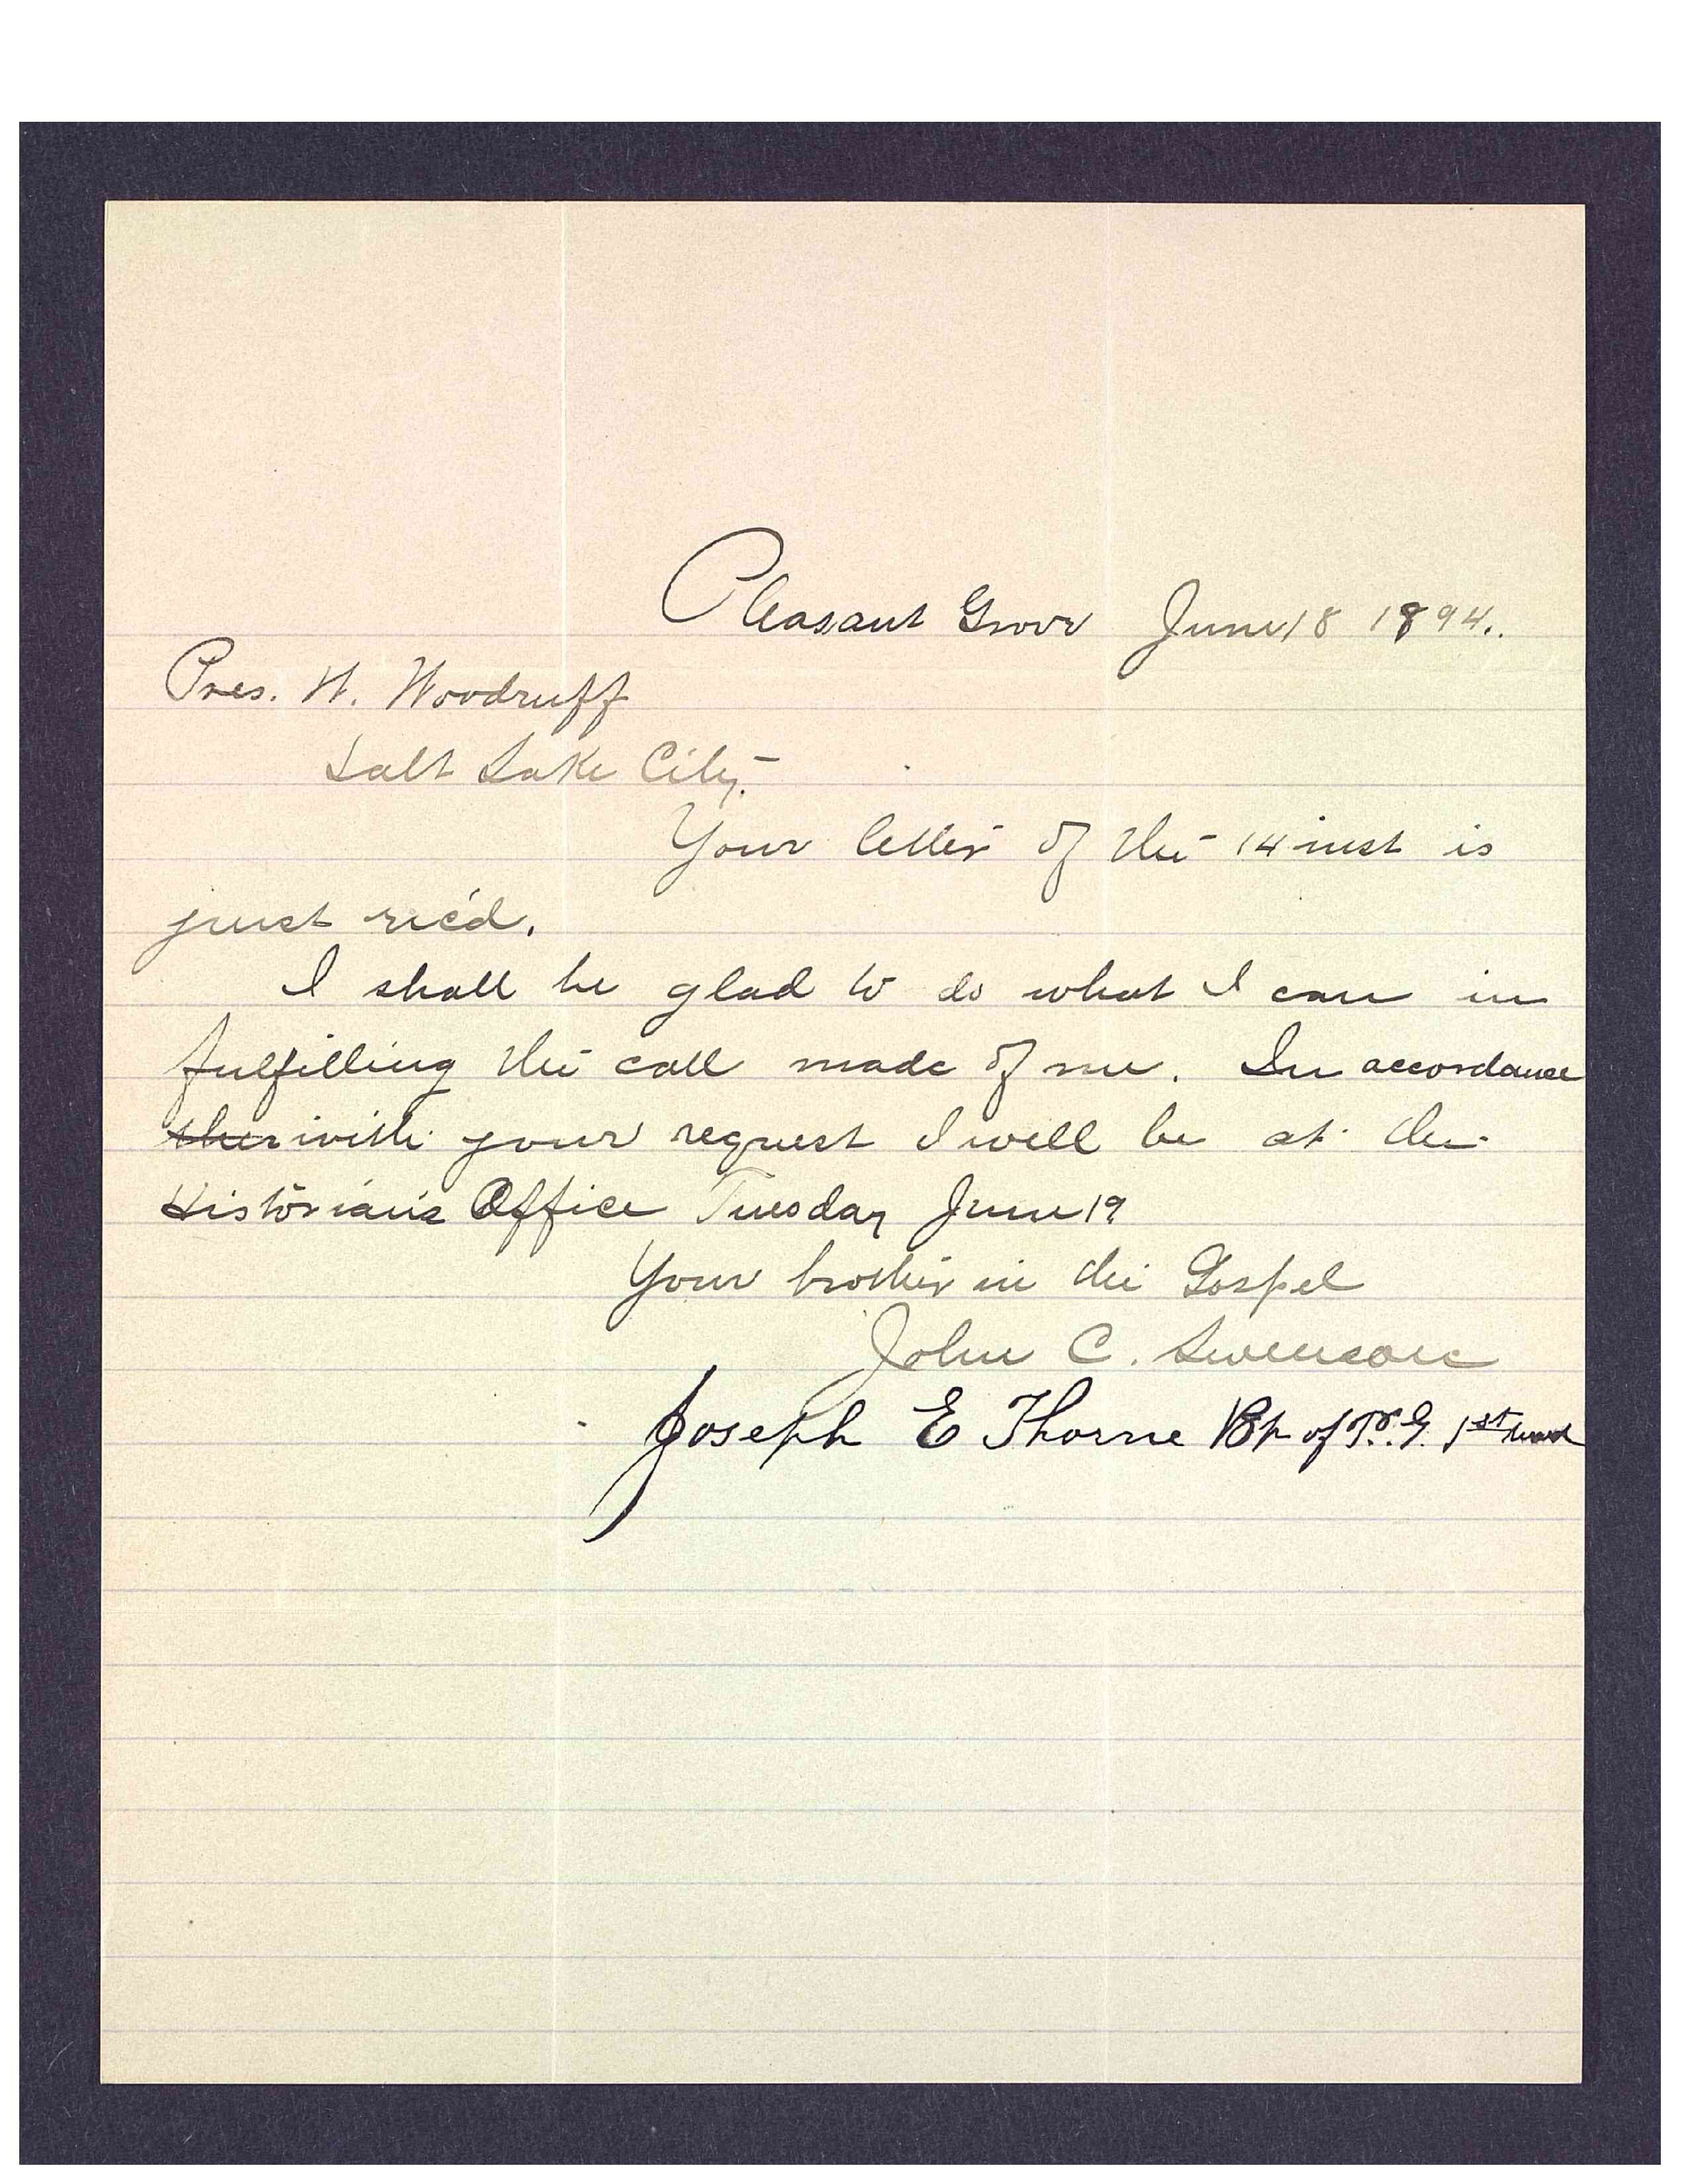 Pleasant Grove June 18 1894.
Pres. W. Woodruff
Salt Lake City.
Your letter of the 14 inst is
just rec'd.
I shall be glad to do what I can in
fulfilling the call made of me. In accordance
ther with your request I will be at the
Historian's Office Tuesday June 19
Your brother in the Gospel
John C. Swenson
Joseph E Thorne Bp of P.G. 1st ward